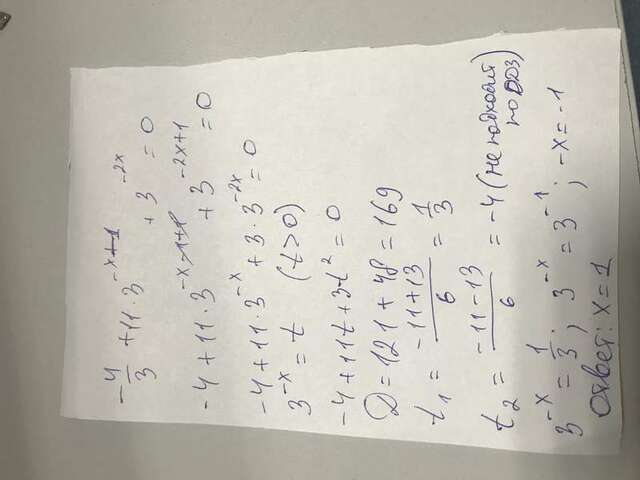 -4/3 + 11·3^(-x+1) + 3^(-2x) = 0
-4 + 11·3^(-x-1+1) + 3^(-2x+1) = 0
-4 + 11·3^(-x) + 3·3^(-2x) = 0
3^(-x) = t (t>0)
-4 + 11t + 3t² = 0
D = 121 + 48 = 169
t₁ = (-11+13)/6 = 1/3
t₂ = (-11-13)/6 = -4 (не подходит
по ОДЗ)
3^(-x) = 1/3; 3^(-x) = 3^(-1); -x = -1
Ответ: x = 1